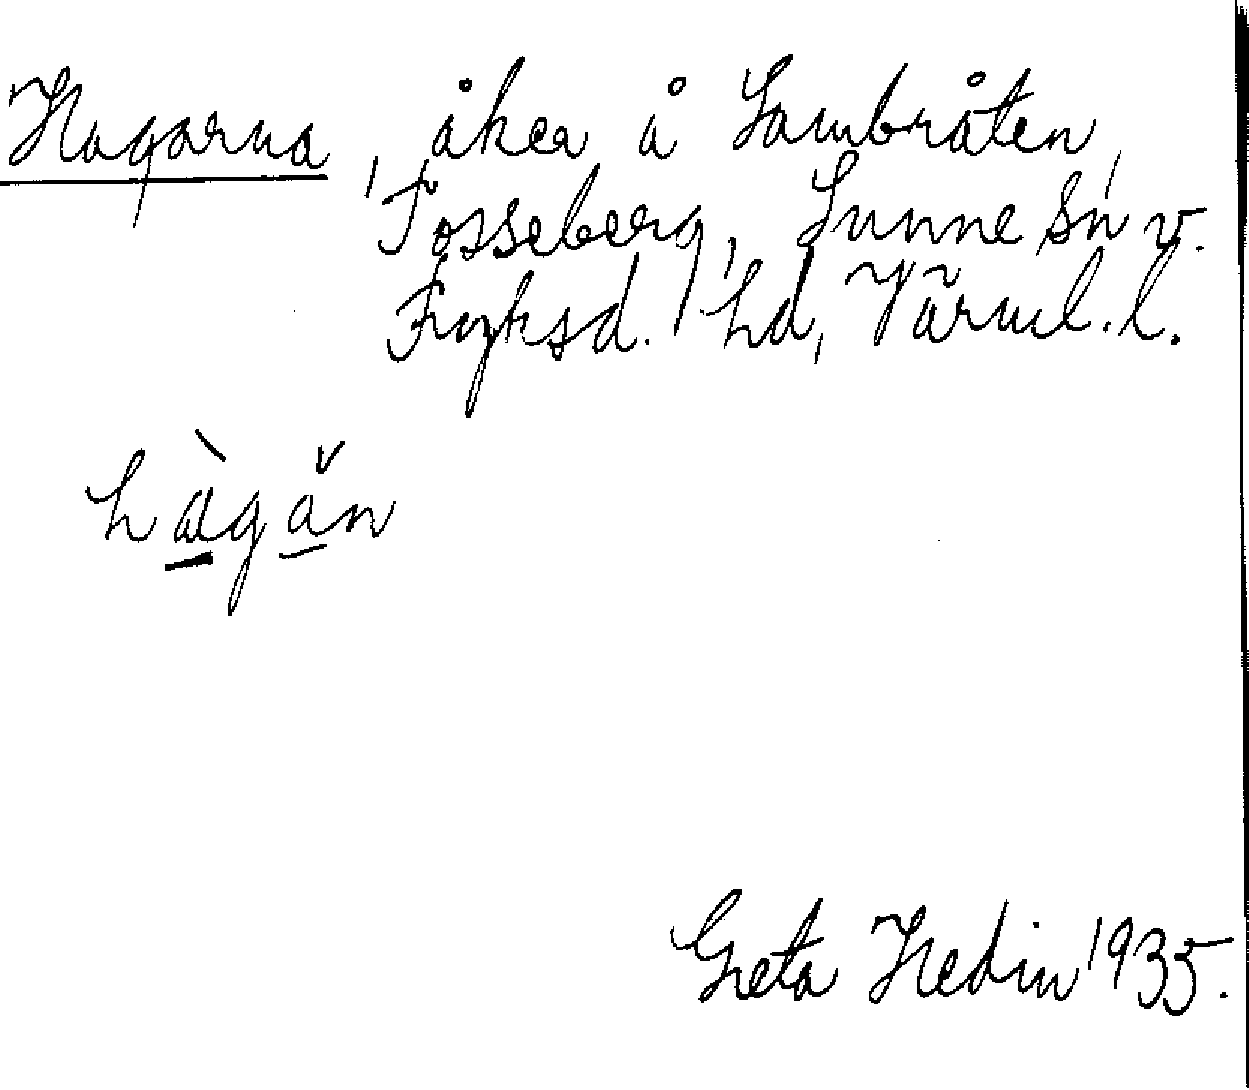 Hagarna, åker å Lambråten,
Tosseberg, Sunne sn v.
Fryksd. hd, Värml. l.
hàgǎn
Greta Hedin 1935.